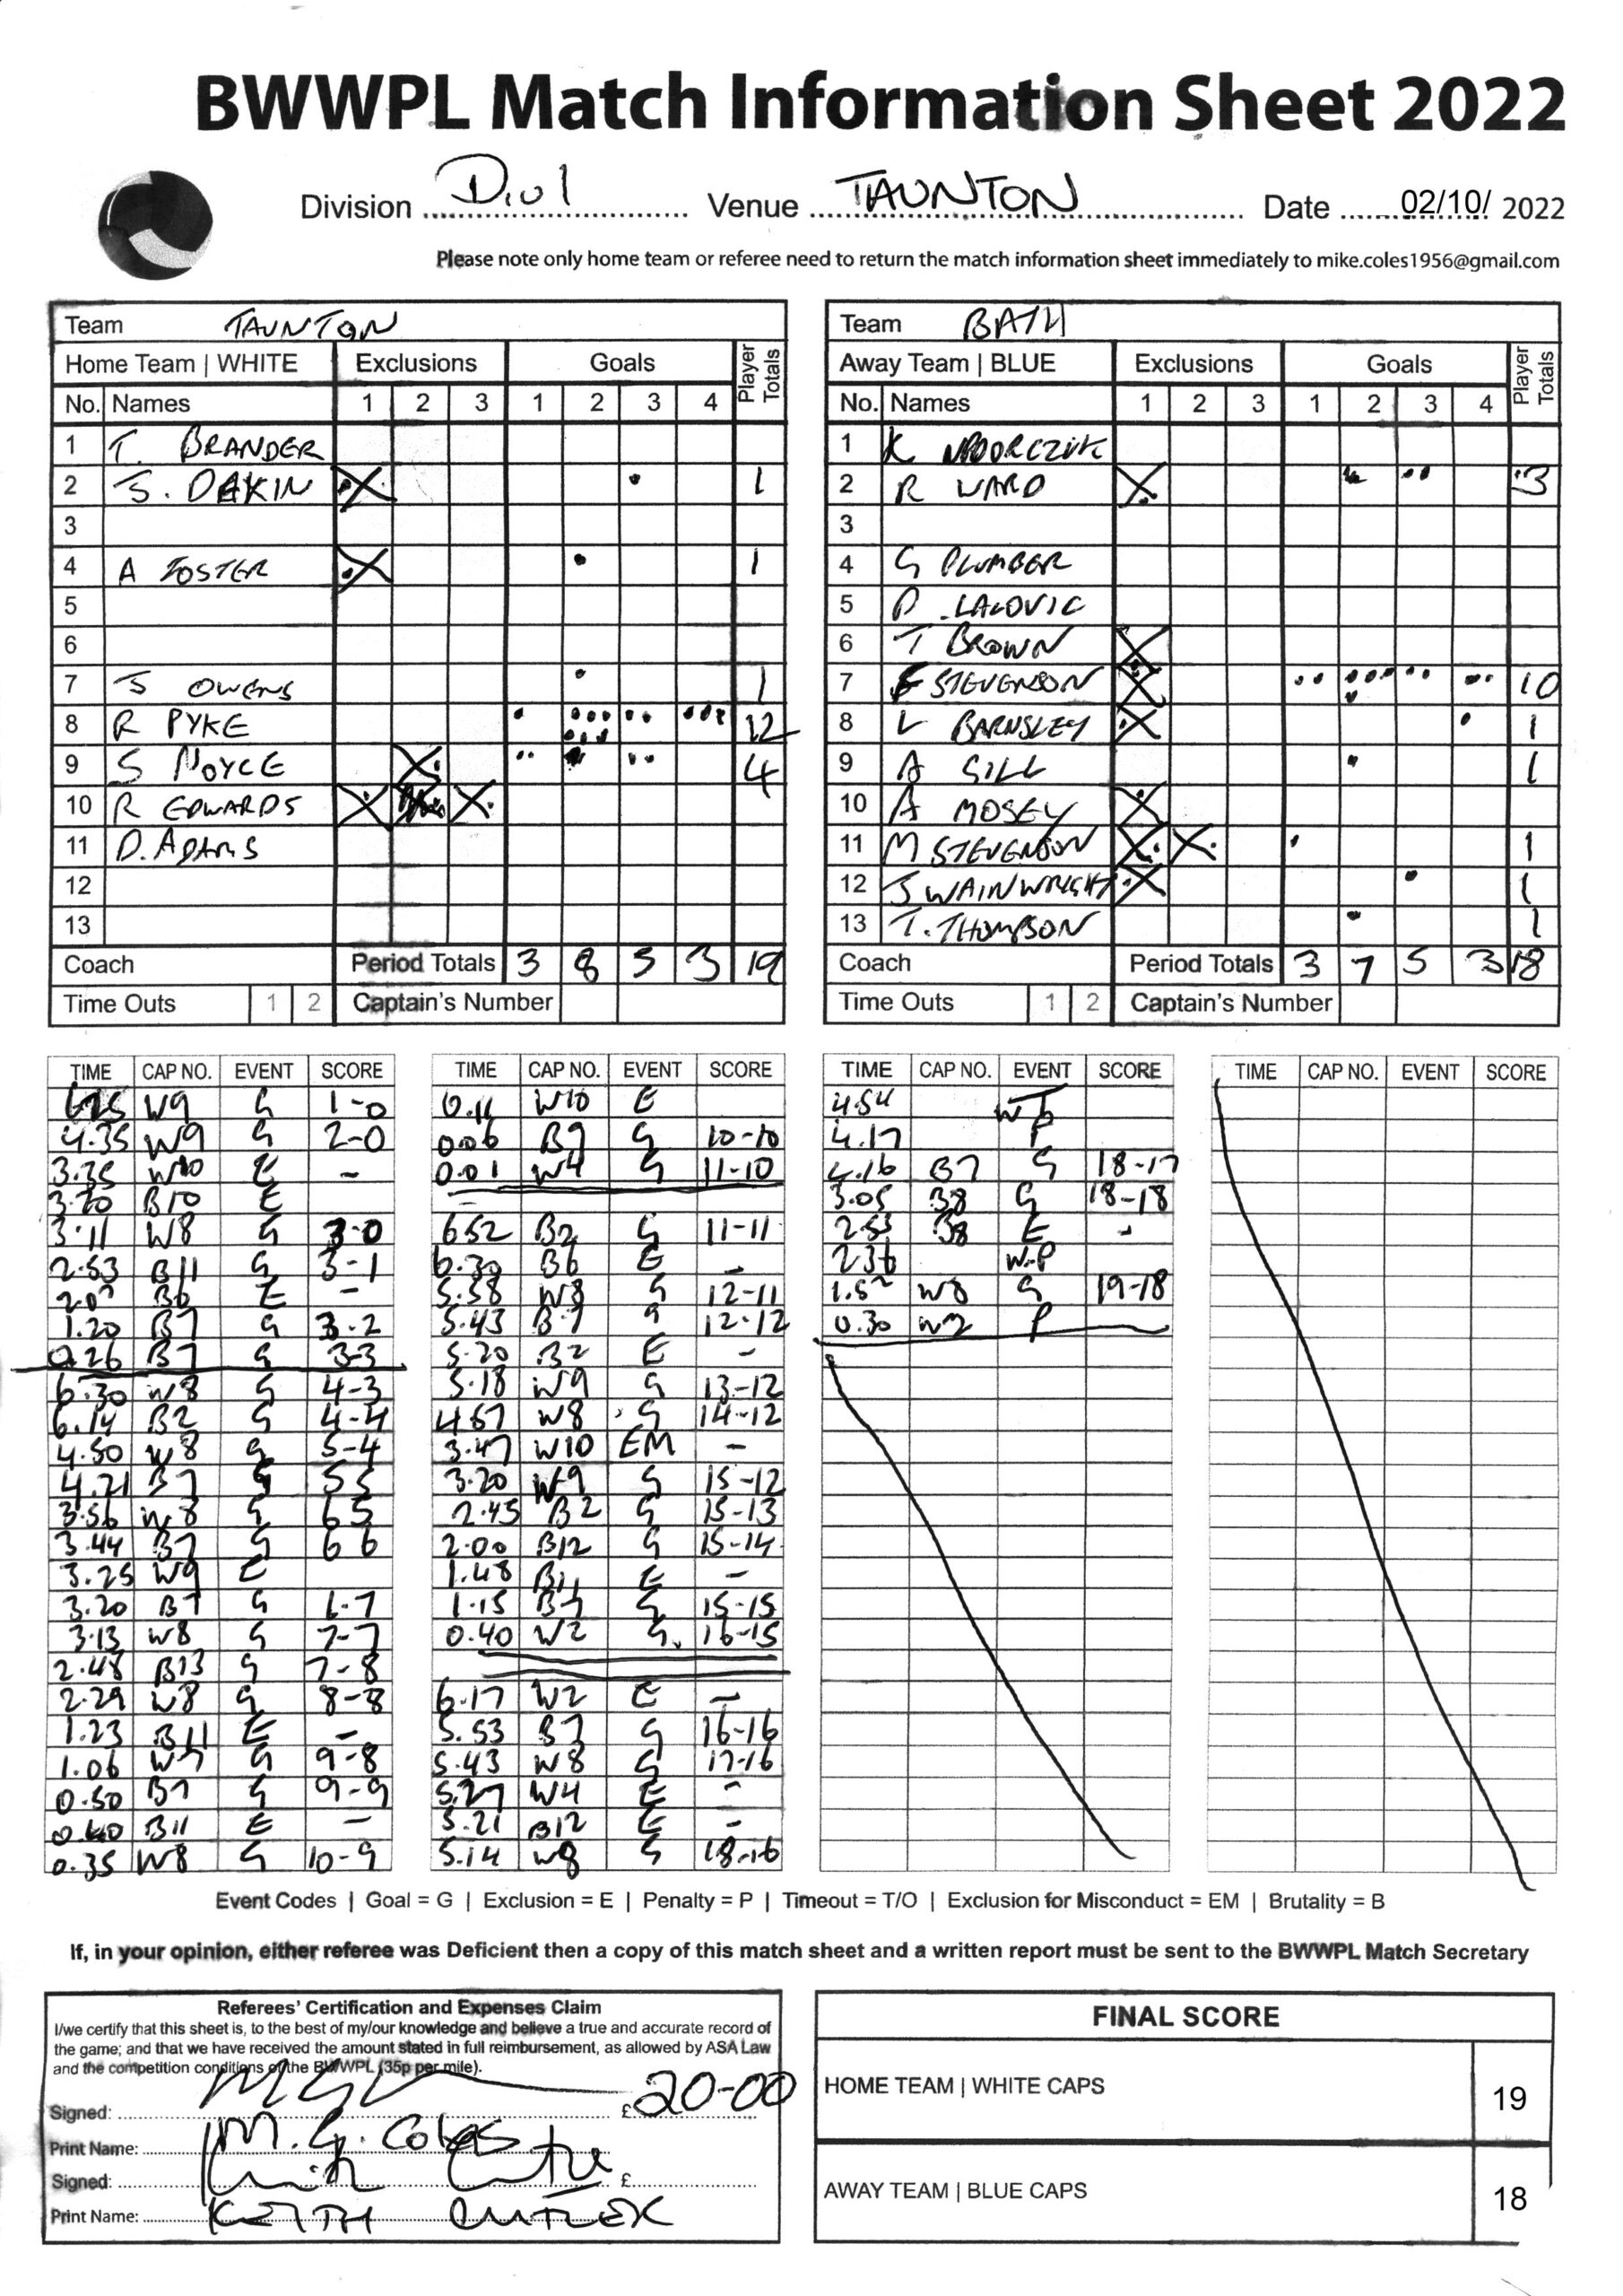 BWWPL Match Information Sheet 2022
Division Div 1 Venue TAUNTON Date 02/10/ 2022
Please note only home team or referee need to return the match information sheet immediately to mike.coles1956@gmail.com
Team TAUNTON
Home Team | WHITE Exclusions Goals Player Totals
No. Names 1 2 3 1 2 3 4
1 T. BRANDER
2 S. DAKIN X 1
3
4 A FOSTER X 1
5
6
7 S OWENS 1
8 R PYKE 12
9 S NOYCE X 4
10 R EDWARDS X X
11 D. ADAMS
12
13
Coach Period Totals 3 8 5 3 19
Time Outs 1 2 Captain's Number
Team BATH
Away Team | BLUE Exclusions Goals Player Totals
No. Names 1 2 3 1 2 3 4
1 K
2 R WARD X 3
3
4 G PLUMBER
5 D. LALOVIC
6 T BROWN X
7 F STEVENSON X 10
8 L BARNSLEY X 1
9 A GILL 1
10 A MOSEY X
11 M STEVENSON X X 1
12 J WAINWRIGHT X 1
13 T. THOMPSON 1
Coach Period Totals 3 7 5 3 18
Time Outs 1 2 Captain's Number
TIME CAP NO. EVENT SCORE
W9 G 1-0
4.35 W9 G 2-0
3.35 W10 E -
3.20 B10 E
3.11 W8 G 3-0
2.53 B11 G 3-1
B6 E -
1.20 B7 G 3-2
0.26 B7 G 3-3
6.30 W8 G 4-3
6.14 B2 G 4-4
4.50 W8 G 5-4
4.21 B7 G 5 5
3.56 W8 G 6 5
3.44 B7 G 6 6
3.25 W9 E
3.20 B7 G 6-7
3.13 W8 G 7-7
2.48 B13 G 7-8
2.29 W8 G 8-8
1.23 B11 E -
1.06 W7 G 9-8
0.50 B7 G 9-9
0.40 B11 E -
0.35 W8 G 10-9
TIME CAP NO. EVENT SCORE
0.11 W10 E
0.06 B9 G 10-10
0.01 W4 G 11-10
6.52 B2 G 11-11
6.30 B6 E -
5.58 W8 G 12-11
5.43 B7 G 12-12
5.20 B2 E -
5.18 W9 G 13-12
4.57 W8 G 14-12
3.47 W10 EM -
3.20 W9 G 15-12
2.45 B2 G 15-13
2.00 B12 G 15-14
1.48 B11 E -
1.15 B7 G 15-15
0.40 W2 G. 16-15
6.17 W2 E -
5.53 B7 G 16-16
5.43 W8 G 17-16
5.27 W4 E -
5.21 B12 E -
5.14 W8 G 18-16
TIME CAP NO. EVENT SCORE
4.54
4.17 P
4.16 B7 G 18-17
3.05 B8 G 18-18
2.53 B8 E -
2.36 W-P
W8 G 19-18
0.30 W2 P
TIME CAP NO. EVENT SCORE
Event Codes | Goal = G | Exclusion = E | Penalty = P | Timeout = T/O | Exclusion for Misconduct = EM | Brutality = B
If, in your opinion, either referee was Deficient then a copy of this match sheet and a written report must be sent to the BWWPL Match Secretary
Referees' Certification and Expenses Claim
I/we certify that this sheet is, to the best of my/our knowledge and believe a true and accurate record of
the game; and that we have received the amount stated in full reimbursement, as allowed by ASA Law
and the competition conditions of the BWWPL (35p per mile).
Signed: £ 20-00
Print Name: M. G. Coles
Signed: £
Print Name: KEITH
FINAL SCORE
HOME TEAM | WHITE CAPS 19
AWAY TEAM | BLUE CAPS 18